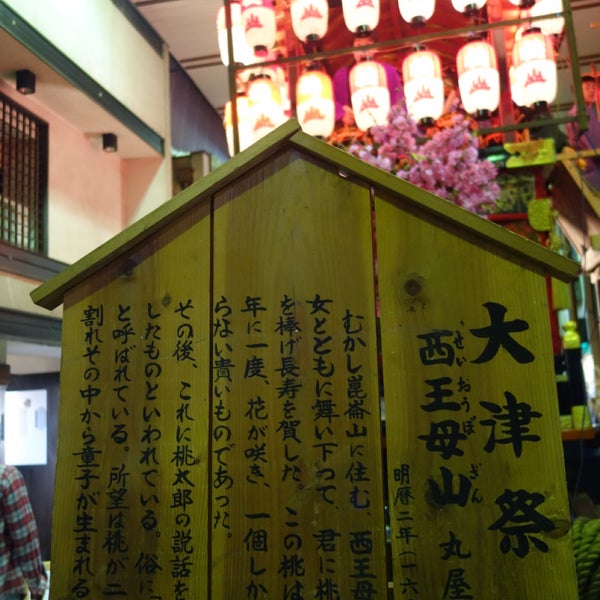 大津祭
西王母山 丸屋
せいおうぼざん
明暦二年(一六
むかし崑崙山に住む、西王母
女とともに舞い下って、君に桃
を捧げ長寿を賀した。この桃は
年に一度、花が咲き、一個しか
らない貴いものであった。
その後、これに桃太郎の説話を
したものといわれている。俗に「
と呼ばれている。所望は桃が二
割れその中から童子が生まれる